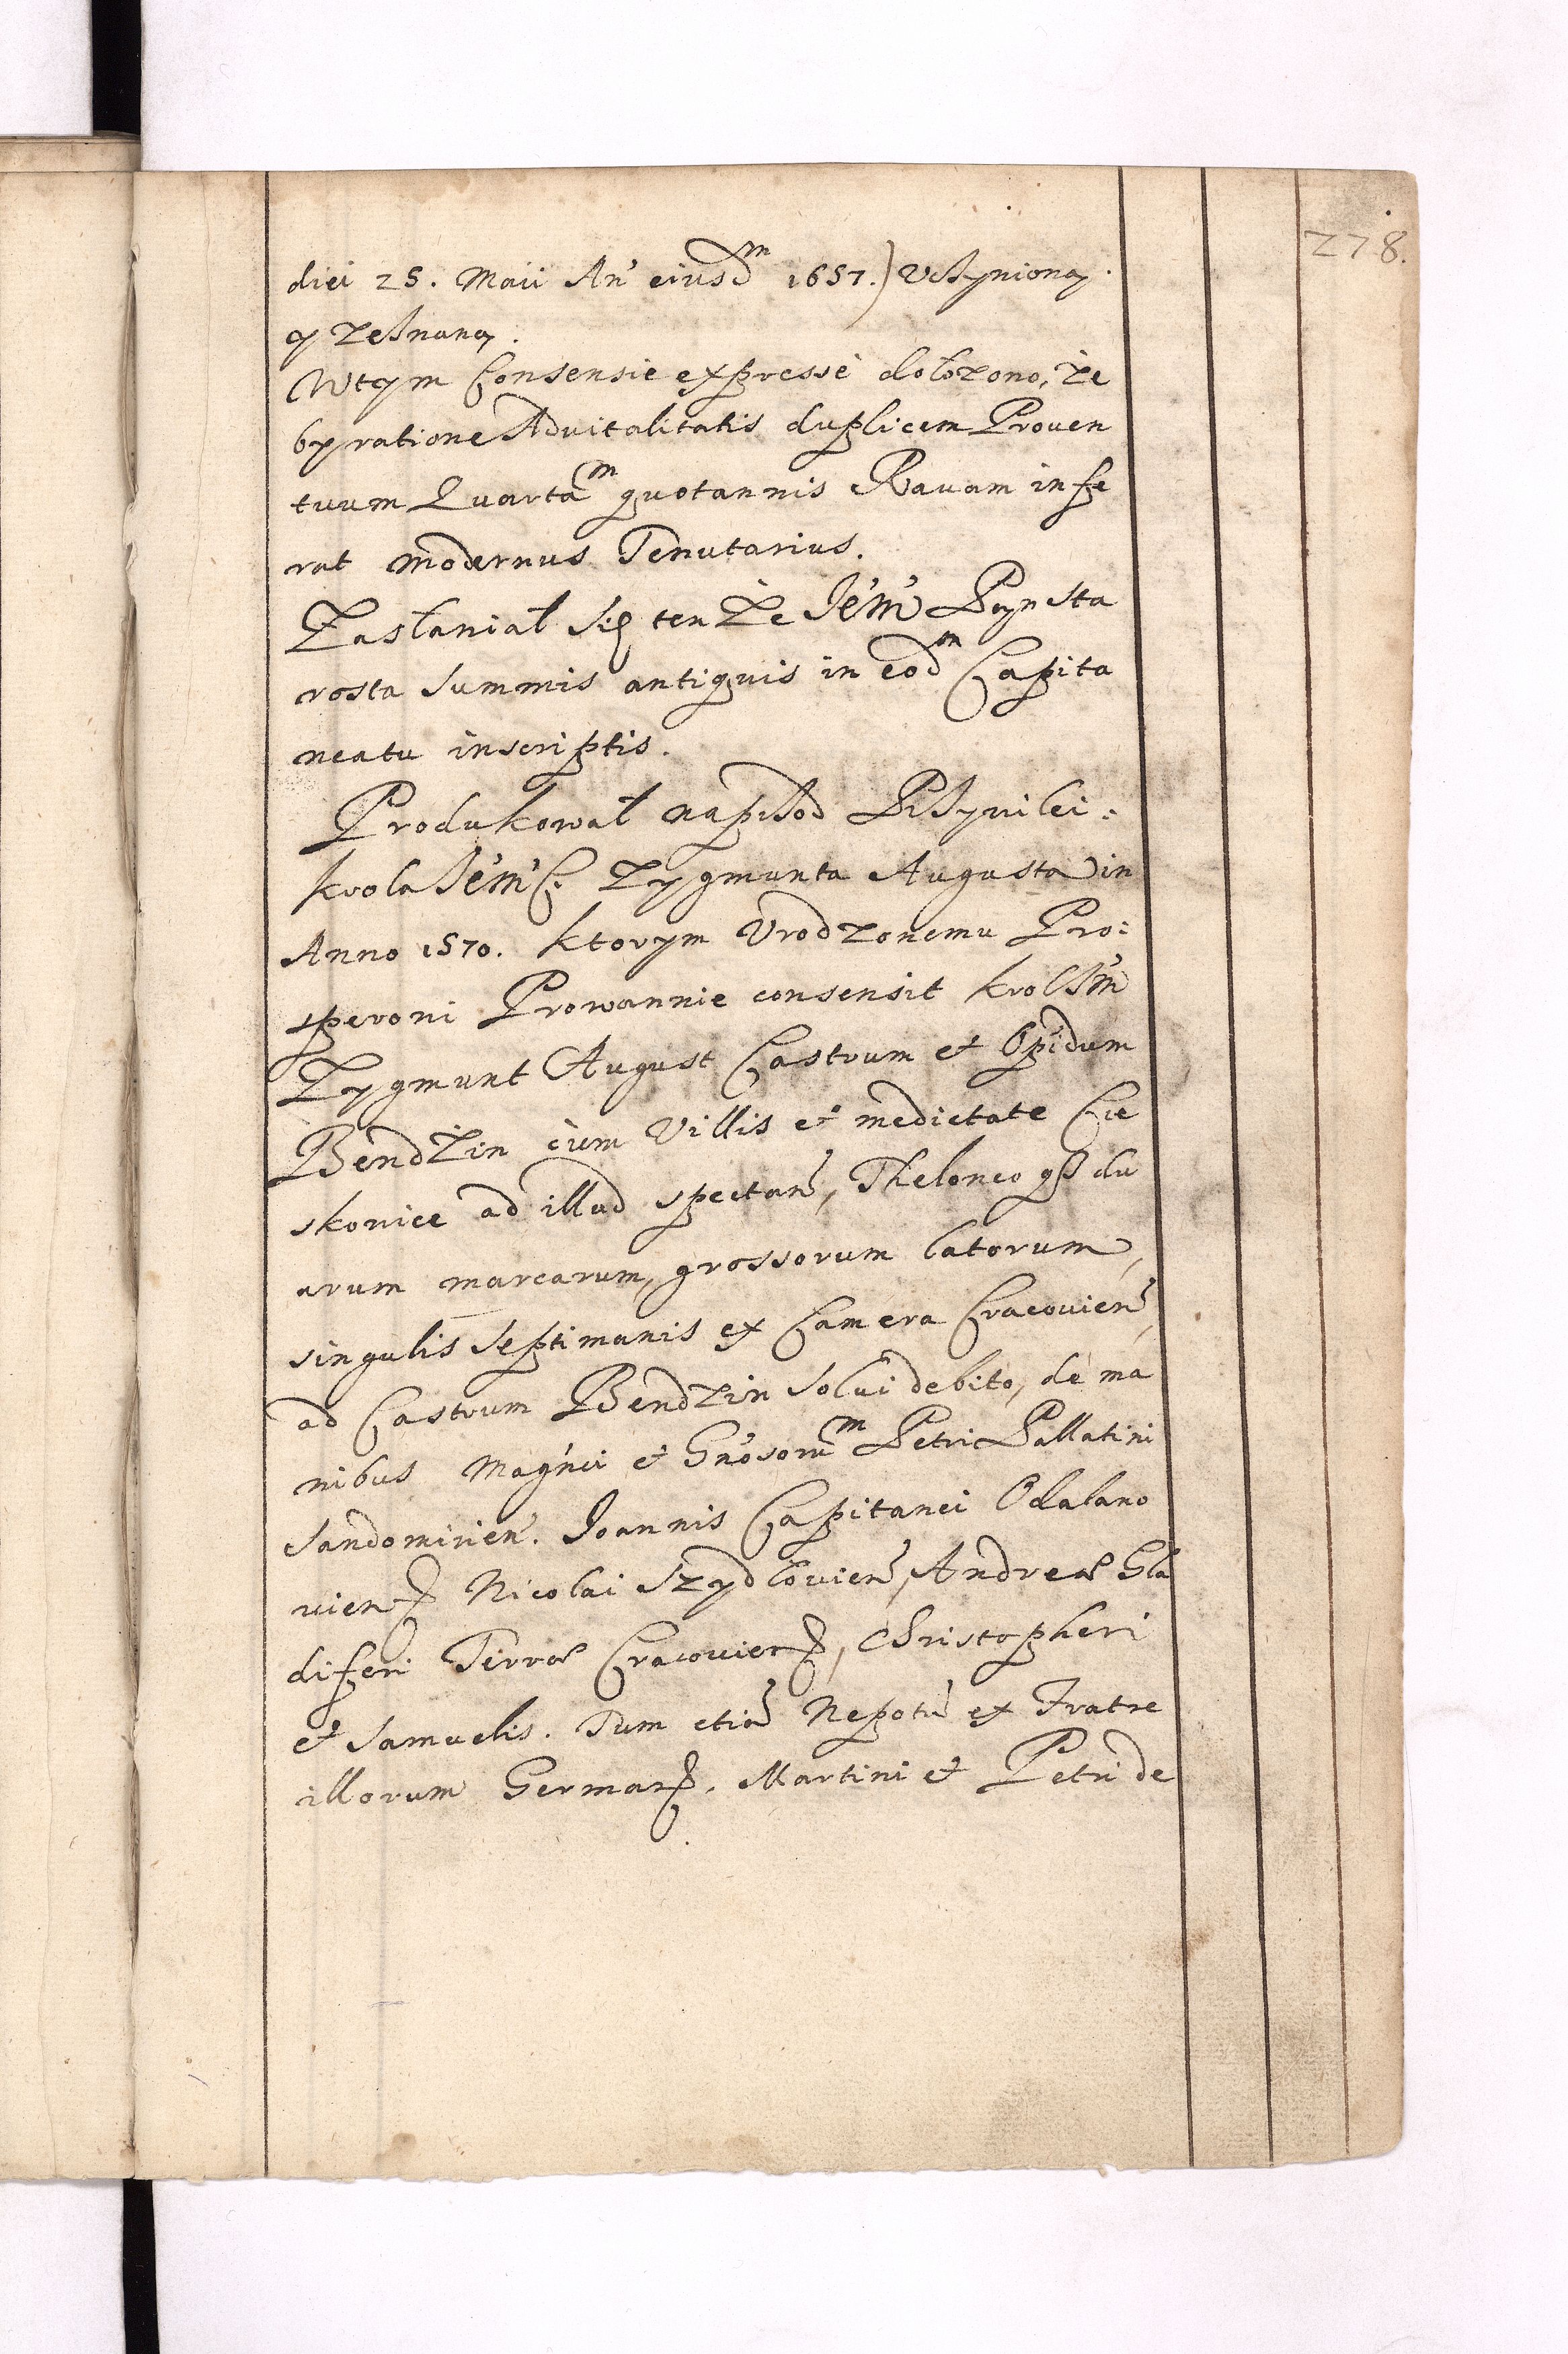 278.
diei 25. Maii An' eiusd<sup>m</sup> 1657.) Uczyniony
y zeznany.
W tym Consensie expresse dołozono, ze
by ratione Advitalitatis duplicem Proven
tuum Quarta<sup>m</sup> quotannis Ravam infe
rat modernus Tenutarius.
Zasłaniał się ten ze Je'm' Pan sta
rosta summis antiquis in eod<sup>m</sup> Capita
neatu inscriptis.
Produkował naprzod Przyvilei:
krola Je'm'C. Zygmunta Augusta in
Anno 1570. ktorym Urodzonemu Pro:
speroni Prowannie consensit krol J'm'
Zygmunt August Castrum et Opidum
Bendzin cum Villis et medietate Cie
skovice ad illud spectan', Theloneo qß du
arum marcarum, grossorum latorum,
singulis septimanis ex Camera Cracovien',
ad Castrum Bendzin solvi debito, de ma
nibus Mag'nci et G'nosoru<sup>m</sup> Petri Pallatini
Sandomirien'. Joannis Capitanei Odalano
vien. Nicolai Szydlovien', Andreæ Gla
diferi Terræ Cracovien., Christopheri
et Samuelis. Tum etia' Nepotu' ex Fratre
illorum German. Martini et Petri de